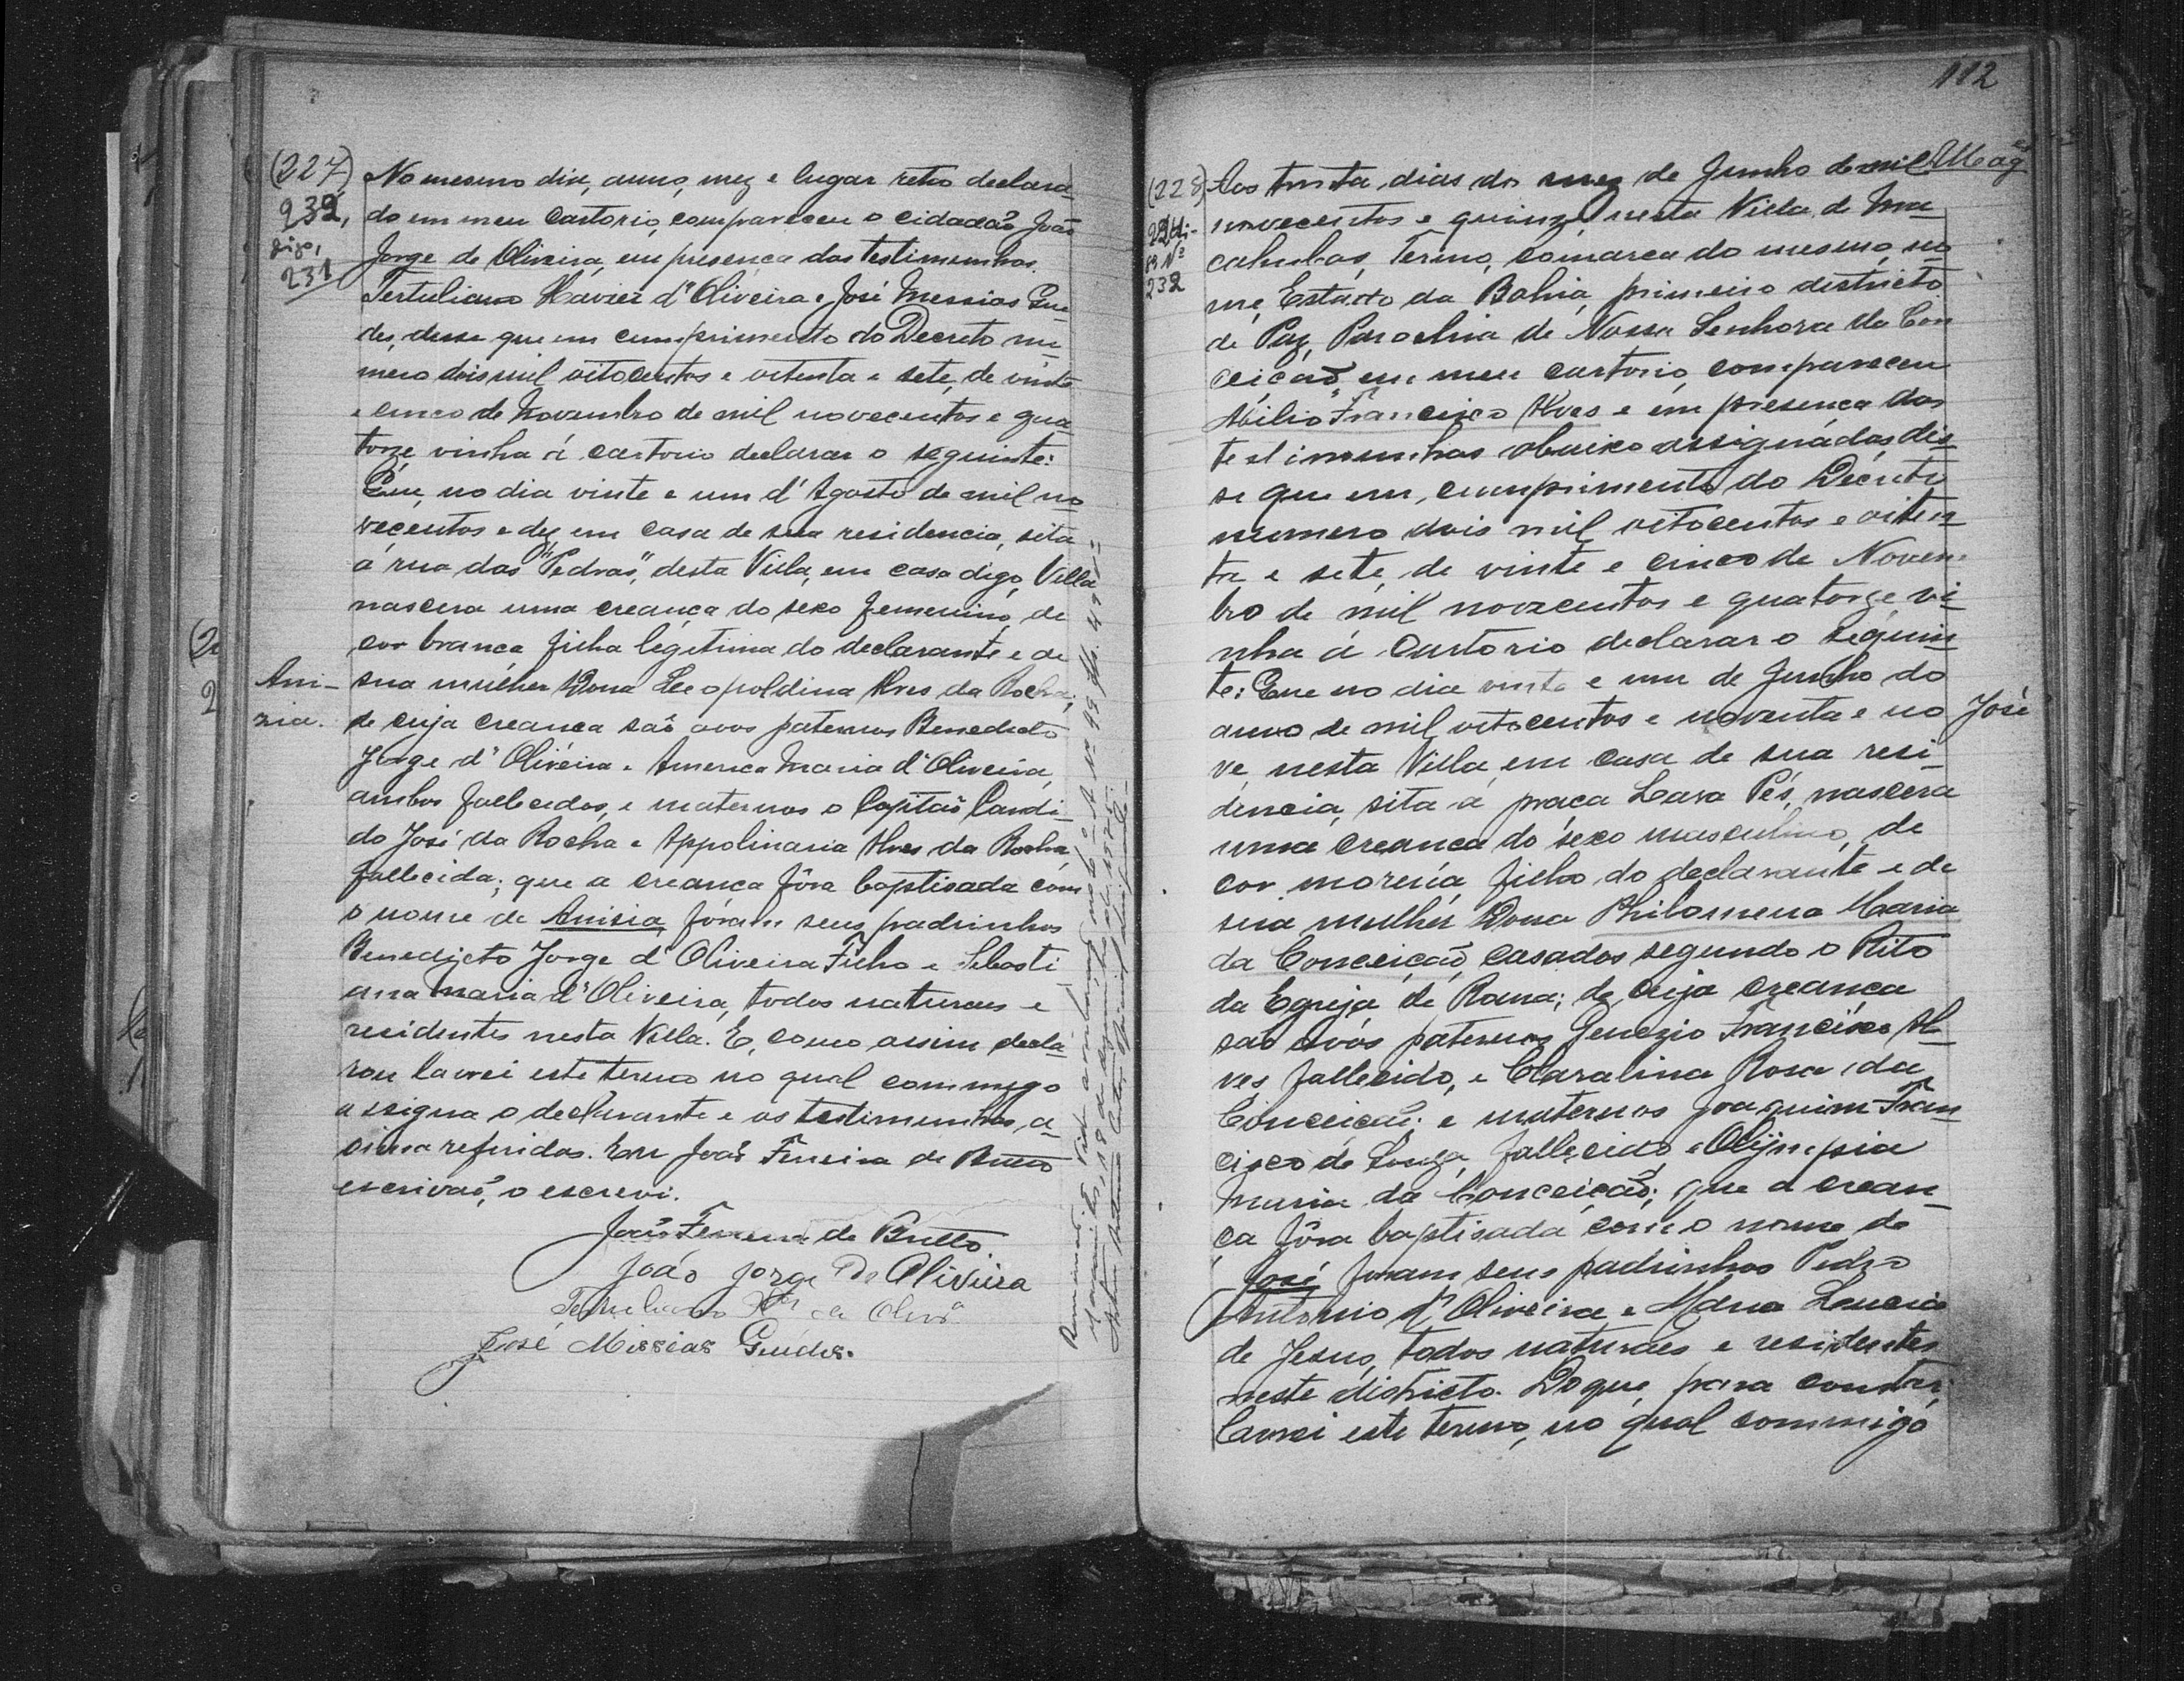 (227)
232,
digo,
231
No mesmo dia, anno, mez e lugar retro declara-
do em meu cartorio, compareceu o cidadão João
Jorge de Oliveira, em presença das testimunhas
Tertuliano Xavier d'Oliveira e José Messias Gue-
des, disse que em cumprimento do Decreto nu-
mero dois mil oitocentos e oitenta e sete, de vinte
e cinco de Novembro de mil novecentos e qua-
torze vinha á cartorio declarar o seguinte:
Que, no dia vinte e um d'Agosto de mil no-
vecentos e dez em casa de sua residencia, sita
á rua das "Pedras", desta Villa, em casa digo, Villa
nascera uma creança do sexo femenino, de
cor branca filha legitima do declarante e de
Ani-
zia.
sua mulher Dona Leopoldina Alves da Rocha;
de cuja creança são avos paternos Benedicto
Jorge d'Oliveira e America Maria d'Oliveira,
ambos fallecidos, e maternos o Capitão Candi-
do José da Rocha e Appolinaria Alves da Rocha,
fallecida; que a creança fôra baptisada com
o nome de Anisia, foram seus padrinhos
Benedicto Jorge d'Oliveira Filho e Sebasti-
ana Maria d'Oliveira, todos naturaes e
residentes nesta Villa. E, como assim decla-
rou lavrei este termo no qual commigo
assigna o declarante e as testimunhas, a-
cima referidas. Eu João Ferreira de Britto
escrivão, o escrevi.
João Ferreira de Britto.
João Jorge De Oliveira
Tertuliano Xer de Olivra
José Missias Guedes.
112
(228)
digo Nº
232
Aos trinta dias do mez de Junho de mil
novecentos e quinze, nesta Villa de Ma-
cahubas, Termo, comarca do mesmo no-
me, Estado da Bahia, primeiro districto
de Paz, Parochia de Nossa Senhora da Con-
ceição, em meu cartorio, compareceu
Abilio Francisco Alves e em presença das
testimunhas abaixo assignadas, dis-
se que em cumprimento do Decreto
numero dois mil oitocentos e oiten-
ta e sete, de vinte e cinco de Novem-
bro de mil novecentos e quatorze vi-
nha á cartorio declarar o seguin-
te: Que no dia vinte e um de Junho do
anno de mil oitocentos e noventa e no-
José
ve, nesta Villa, em casa de sua resi-
dencia, sita á praça Lava Pés, nascera
uma creança do sexo masculino, de
cor morena, filho do declarante e de
sua mulher Dona Philomena Maria
da Conceição, casados segundo o Rito
da Egreja de Roma; de cuja creança
são avós paternos Genezio Francisco Al-
ves fallecido, e Claralina Rosa da
Conceição; e maternos Joaquim Fran-
cisco de Souza, fallecido e Olympia
Maria da Conceição; que a crean-
ça fôra baptisada com o nome de
José foram seus padrinhos Pedro
Antonio d'Oliveira e Maria Lencia
de Jesus, todos naturaes e residentes
neste districto. Do que, para constar,
lavrei este termo, no qual commigo